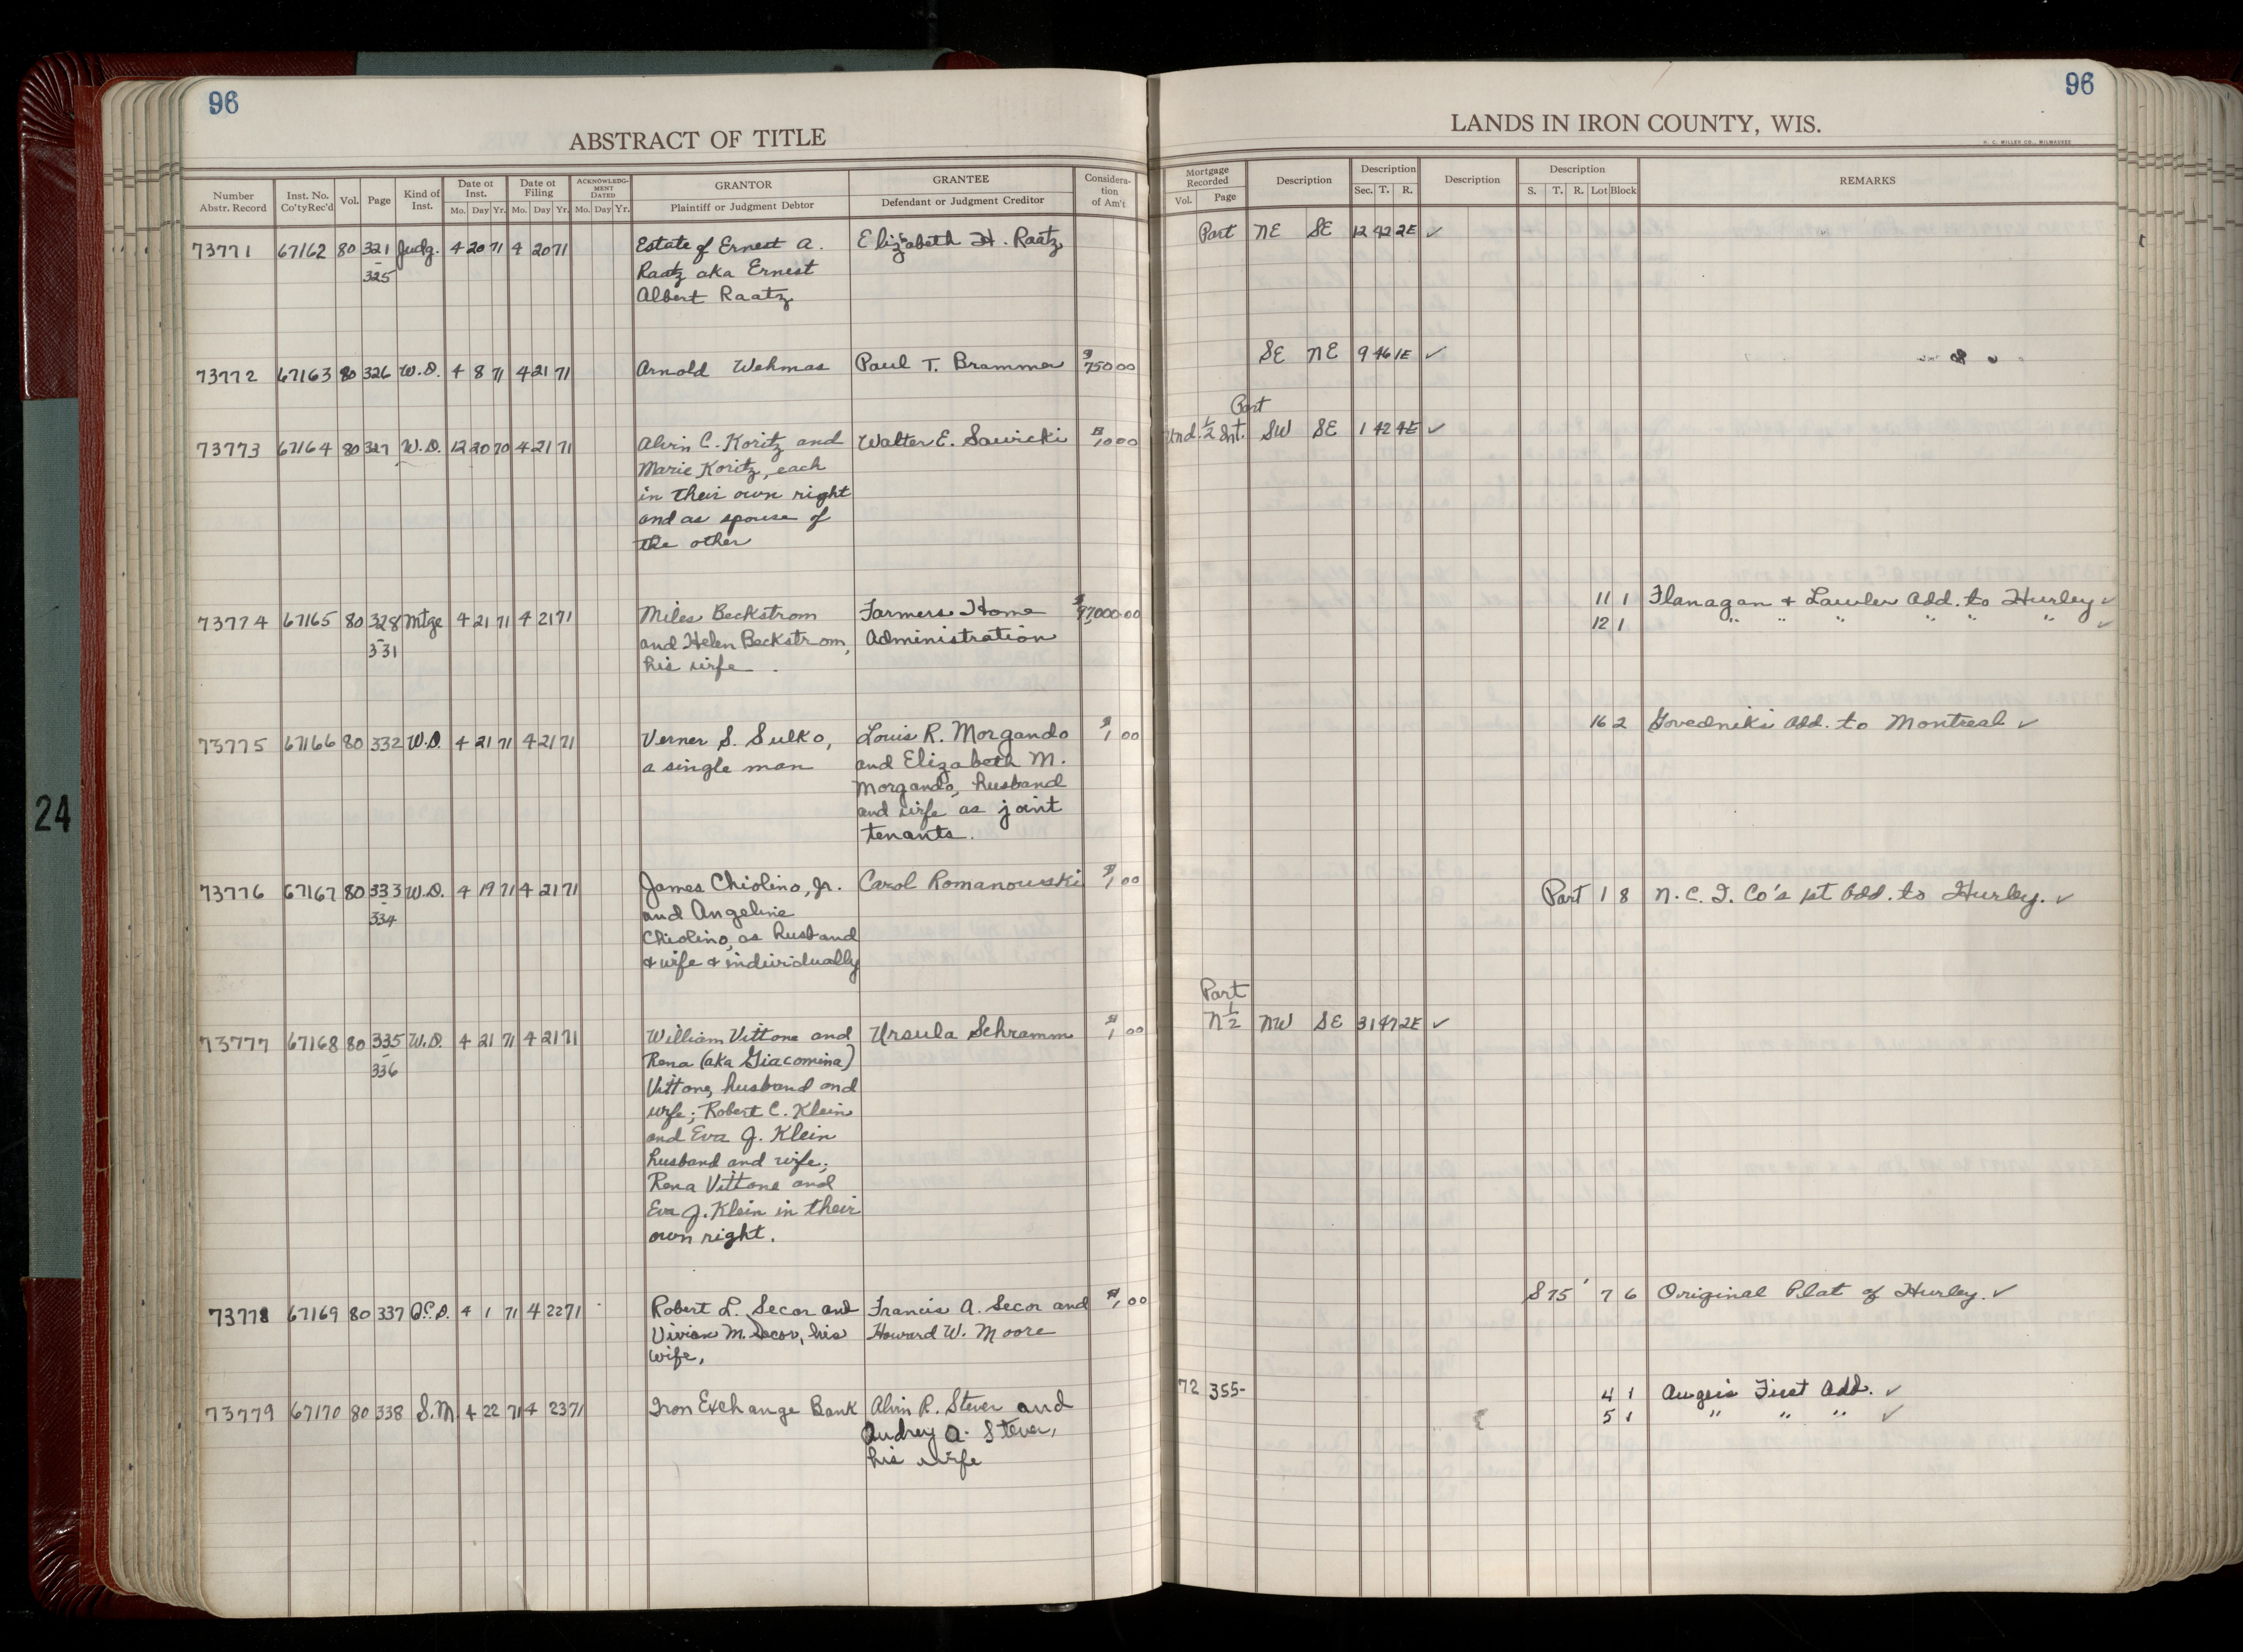 96
ABSTRACT OF TITLE
Number Abstr. Record
Inst. No. Co'tyRec'd
Vol.
Page
Kind of Inst.
Date of Inst.
Mo. Day Yr.
Date of Filing
Mo. Day Yr.
ACKNOWLEDG-
MENT
DATED
Mo. Day Yr.
GRANTOR
Plaintiff or Judgment Debtor
GRANTEE
Defendant or Judgment Creditor
Considera-
tion
of Am't
73771 67162 80 321 Judg. 4 20 71 4 20 71 Estate of Ernest A. Elizabeth H. Raatz
- 325 Raatz aka Ernest
Albert Raatz
73772 67163 80 326 W.D. 4 8 71 4 21 71 Arnold Wehmas Paul T. Brammer $750 00
73773 67164 80 327 W.D. 12 20 70 4 21 71 Alvin C. Koritz and Walter E. Sawicki
Marie Koritz, each
in their own right
and as spouse of
the other
73774 67165 80 328 Mtge 4 21 71 4 21 71 Miles Beckstrom Farmers Home
- 331 and Helen Beckstrom, Administration
his wife
73775 67166 80 332 W.D. 4 21 71 4 21 71 Verner S. Sulko, Louis R. Morgando $1 00
a single man and Elizabeth M.
Morgando, husband
and wife as joint
tenants.
73776 67167 80 333 W.D. 4 19 71 4 21 71 James Chiolino, Jr. Carol Romanowski $1 00
- 334 and Angeline
Chiolino, as husband
& wife & individually
73777 67168 80 335 W.D. 4 21 71 4 21 71 William Vittone and Ursula Schramm $1 00
- 336 Rena (aka Giacomina)
Vittone, husband and
wife; Robert C. Klein
and Eva J. Klein
husband and wife;
Rena Vittone and
Eva J. Klein in their
own right.
73778 67169 80 337 Q.C.D. 4 1 71 4 22 71 Robert L. Secor and Francis A. Secor and $1 00
Vivian M. Secor, his Howard W. Moore
wife,
73779 67170 80 338 S.M 4 22 71 4 23 71 Iron Exchange Bank Alvin R. Stever and
Audrey A. Stever,
his wife
24
96
LANDS IN IRON COUNTY, WIS.
H. C. MILLER CO., MILWAUKEE
Mortgage
Recorded
Vol. Page
Description
Description
Sec. T. R.
Description
Description
S. T. R. Lot Block
REMARKS
Part NE SE 12 42 2E ✓
SE NE 9 46 1E ✓
Part
Und. 1/2 Int. SW SE 1 42 4E ✓
11 1 Flanagan & Lawler Add. to Hurley ✓
12 1 " " " " " " ✓
16 2 Govednik's Add. to Montreal ✓
Part 1 8 N. C. I. Co's 1st Add. to Hurley. ✓
Part
N 1/2 NW SE 31 47 2E ✓
S 75' 7 6 Original Plat of Hurley. ✓
72 355- 4 1 First Add. ✓
5 1 " " " ✓